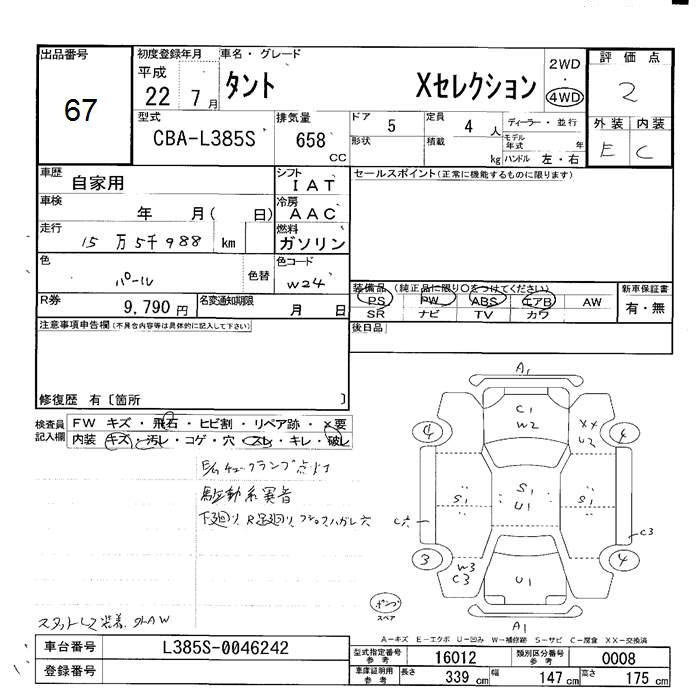 出品番号
67
初度登録年月
平成
22 7月
車名・グレード
タント Xセレクション
2WD
・
4WD
評価点
2
型式
CBA-L385S
排気量
658 CC
ドア 5
定員 4 人
ディーラー・並行
外装 内装
E C
形状
積載 kg
モデル年式 年
ハンドル 左・右
車歴
自家用
シフト
IAT
セールスポイント(正常に機能するものに限ります)
車検
年 月( 日)
冷房
AAC
走行
15万5千988 km
燃料
ガソリン
色
パール
色替
色コード
W24
装備品(純正品に限り○をつけてください)
新車保証書
PS PW ABS エアB AW
有・無
SR ナビ TV カワ
R券
9,790 円
名変通知期限
月 日
後日品
注意事項申告欄(不具合内容等は具体的に記入して下さい)
修復歴 有〔箇所 〕
検査員
記入欄
FW キズ・飛石・ヒビ割・リペア跡・×要
内装 キズ・汚レ・コゲ・穴・スレ・キレ・破レ
E/Gチェックランプ点灯
駆動系異音
下廻り、R足廻りサビ
スタットレス装着、外AW
A1
C1
W2
XX
U2
4
4
S1
S1
U1
S1
C穴
C3
3
4
W3
C3
U1
ポンプ
スペア
A1
A-キズ E-エクボ U-凹み W-補修跡 S-サビ C-腐食 XX-交換済
車台番号
L385S-0046242
登録番号
型式指定番号
参考
16012
類別区分番号
参考
0008
車庫証明用
参考
長さ 339 cm
幅 147 cm
高さ 175 cm